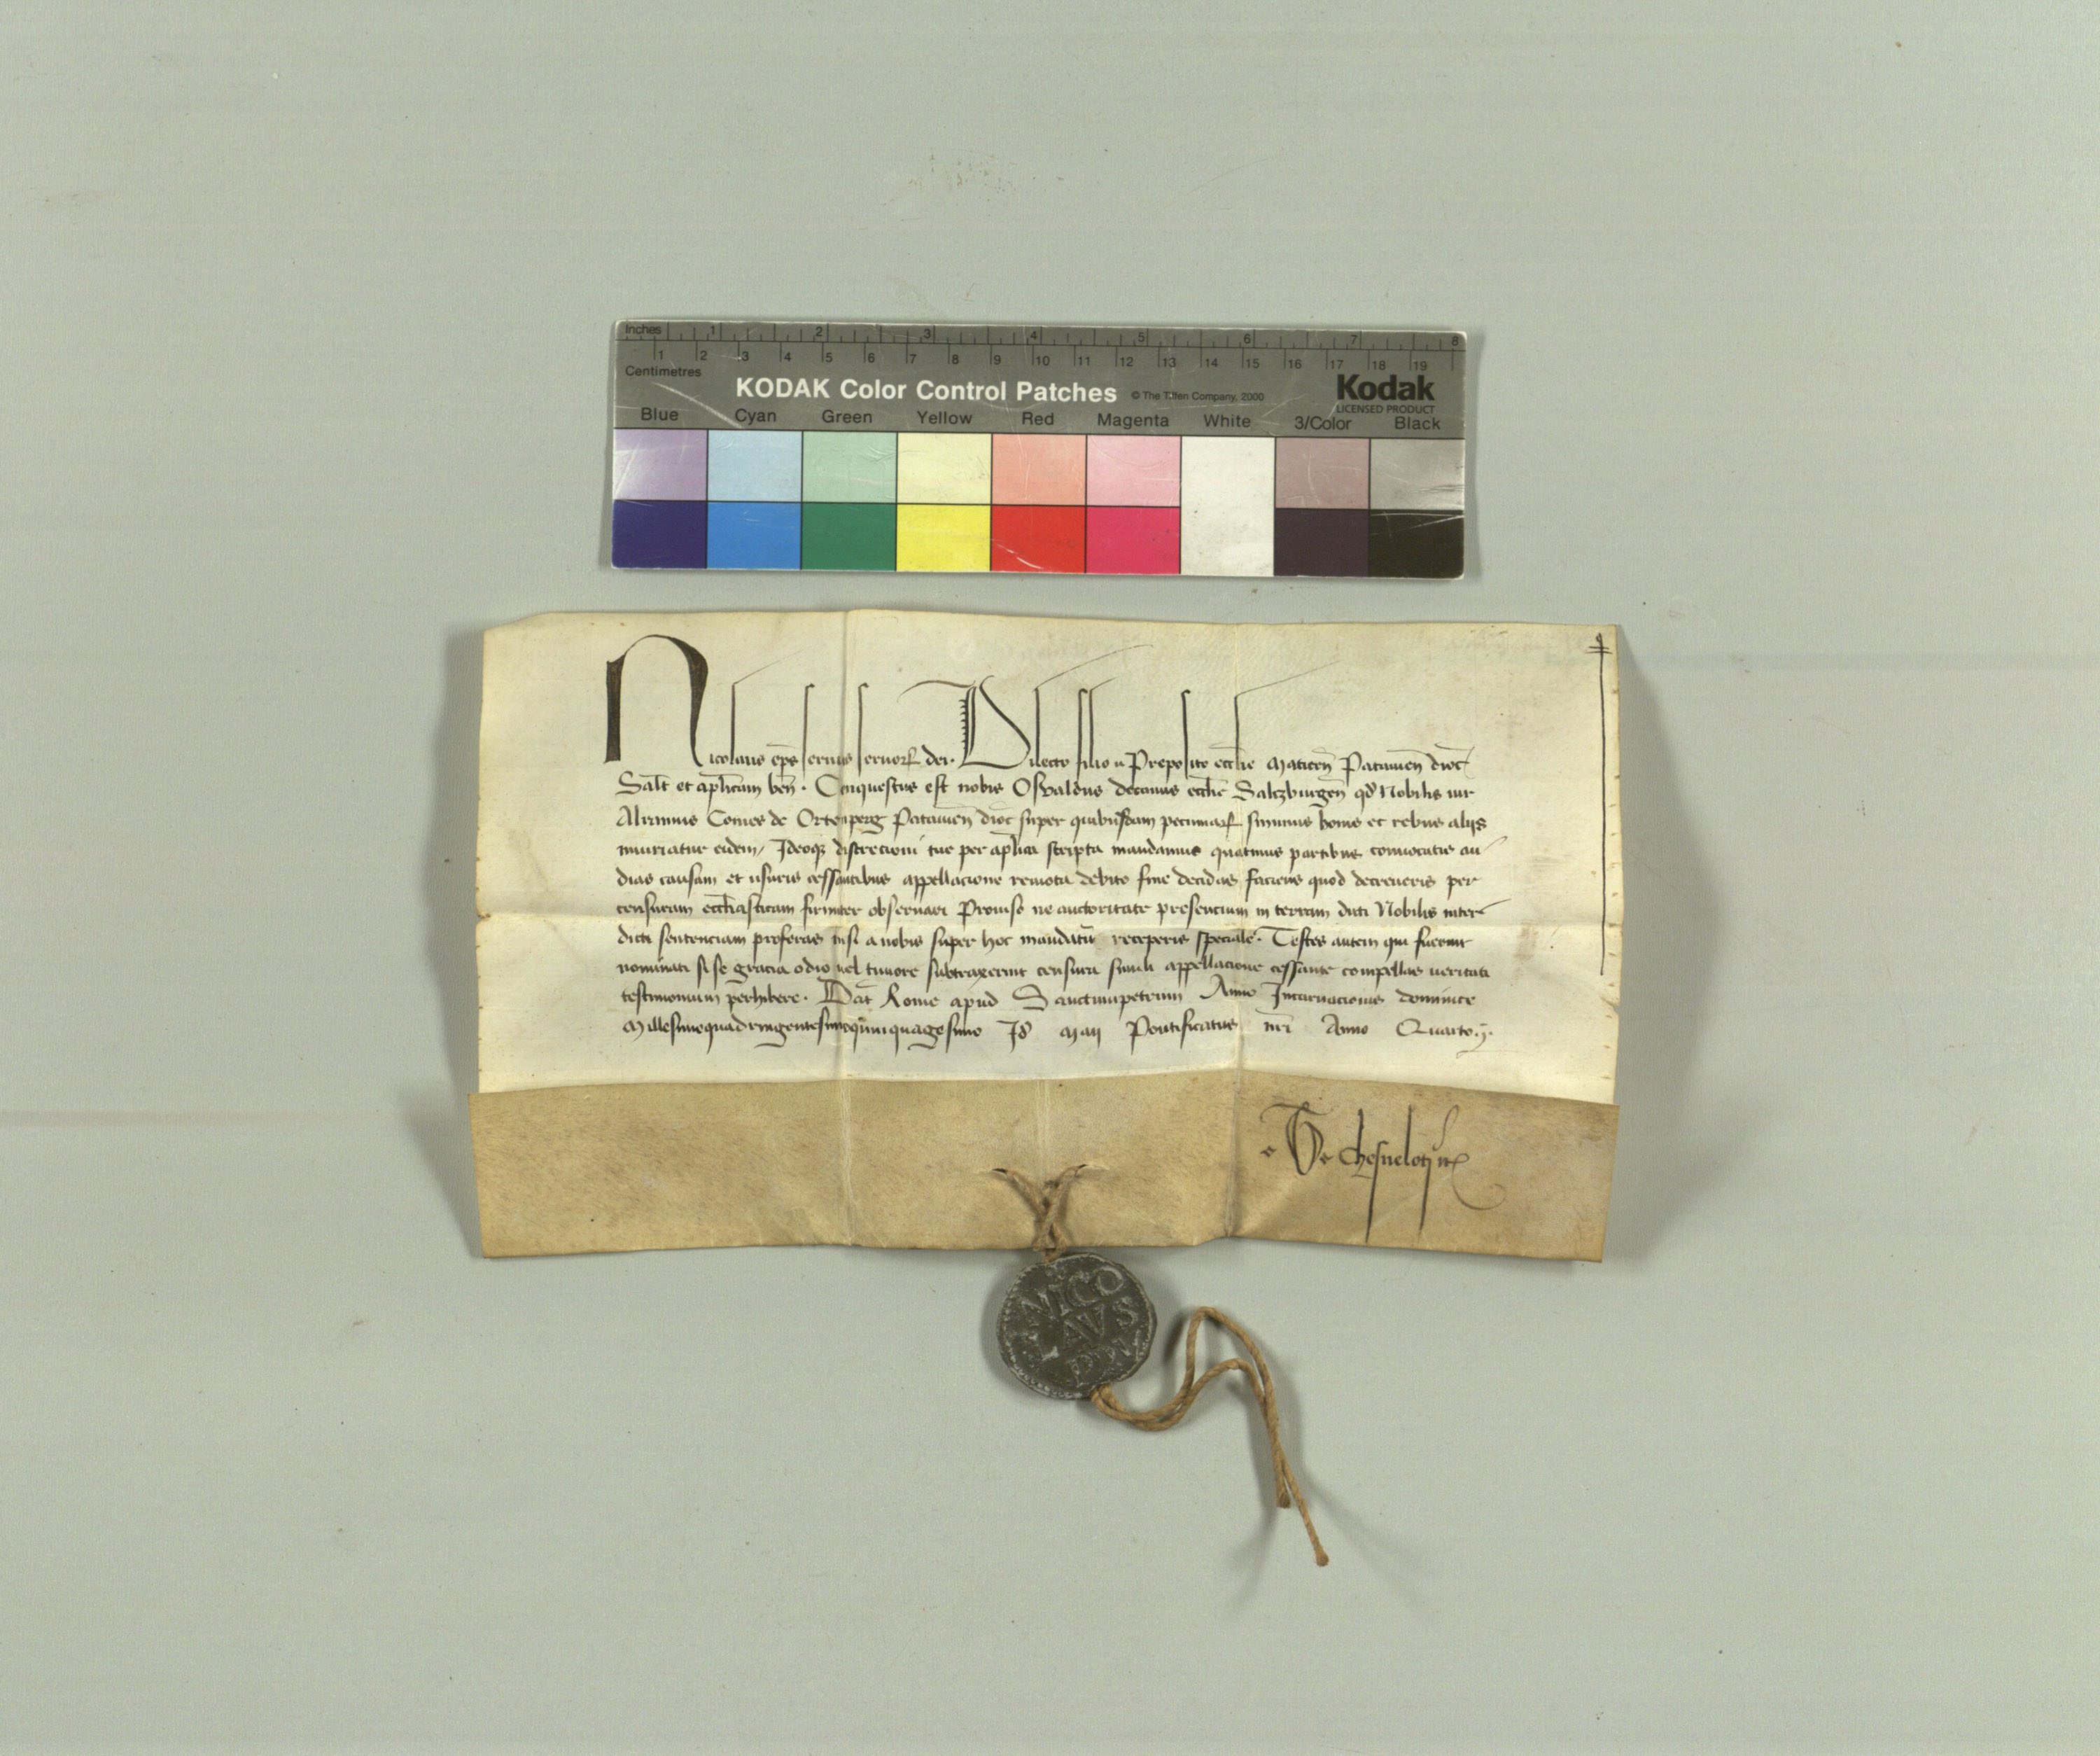 Inches 1 2 3 4 5 6 7 8
1 2 3 4 5 6 7 8 9 10 11 12 13 14 15 16 17 18 19
Centimetres
KODAK Color Control Patches © The Tiffen Company, 2000 Kodak
LICENSED PRODUCT
Blue Cyan Green Yellow Red Magenta White 3/Color Black
Nicolaus ep̄s seruus seruoꝝ dei. Dilecto filio .. Preposito eccl̄ie Maticeñ Patauieñ dioc̄
Sal̄t et apl̄icam beñ. Conquestus est nobis Osvaldus decanus eccl̄ie Saltzburgeñ qđ Nobilis uir
Alramus Comes de Ortenperg Patauieñ dioc̄ super quibusdam pecuniaꝝ summis bonis et rebus alijs
iniuriatur eidem, Ideoqꝫ discretioni tue per apl̄ica scripta mandamus quatinus partibus conuocatis au
dias causam et usuris cessantibus appellacione remota debito fine decidas faciens quod decreueris per
censuram eccl̄iasticam firmiter obseruari Prouiso ne auctoritate presencium in terram dicti Nobilis inter
dicti sentenciam proferas nisi a nobis super hoc mandatū receperis speciale. Testes autem qui fuerint
nominati si se gracia odio uel timore subtraxerint censura simili appellacione cessante compellas ueritati
testimonium perhibere. Dat̄ Rome apud Sanctumpetrum Anno Incarnacionis dominice
Millesimoquadringentesimoquinquagesimo Iđ Maii Pontificatus nr̄i Anno Quarto.
De Chosnelot
NICO
LAVS
PP V